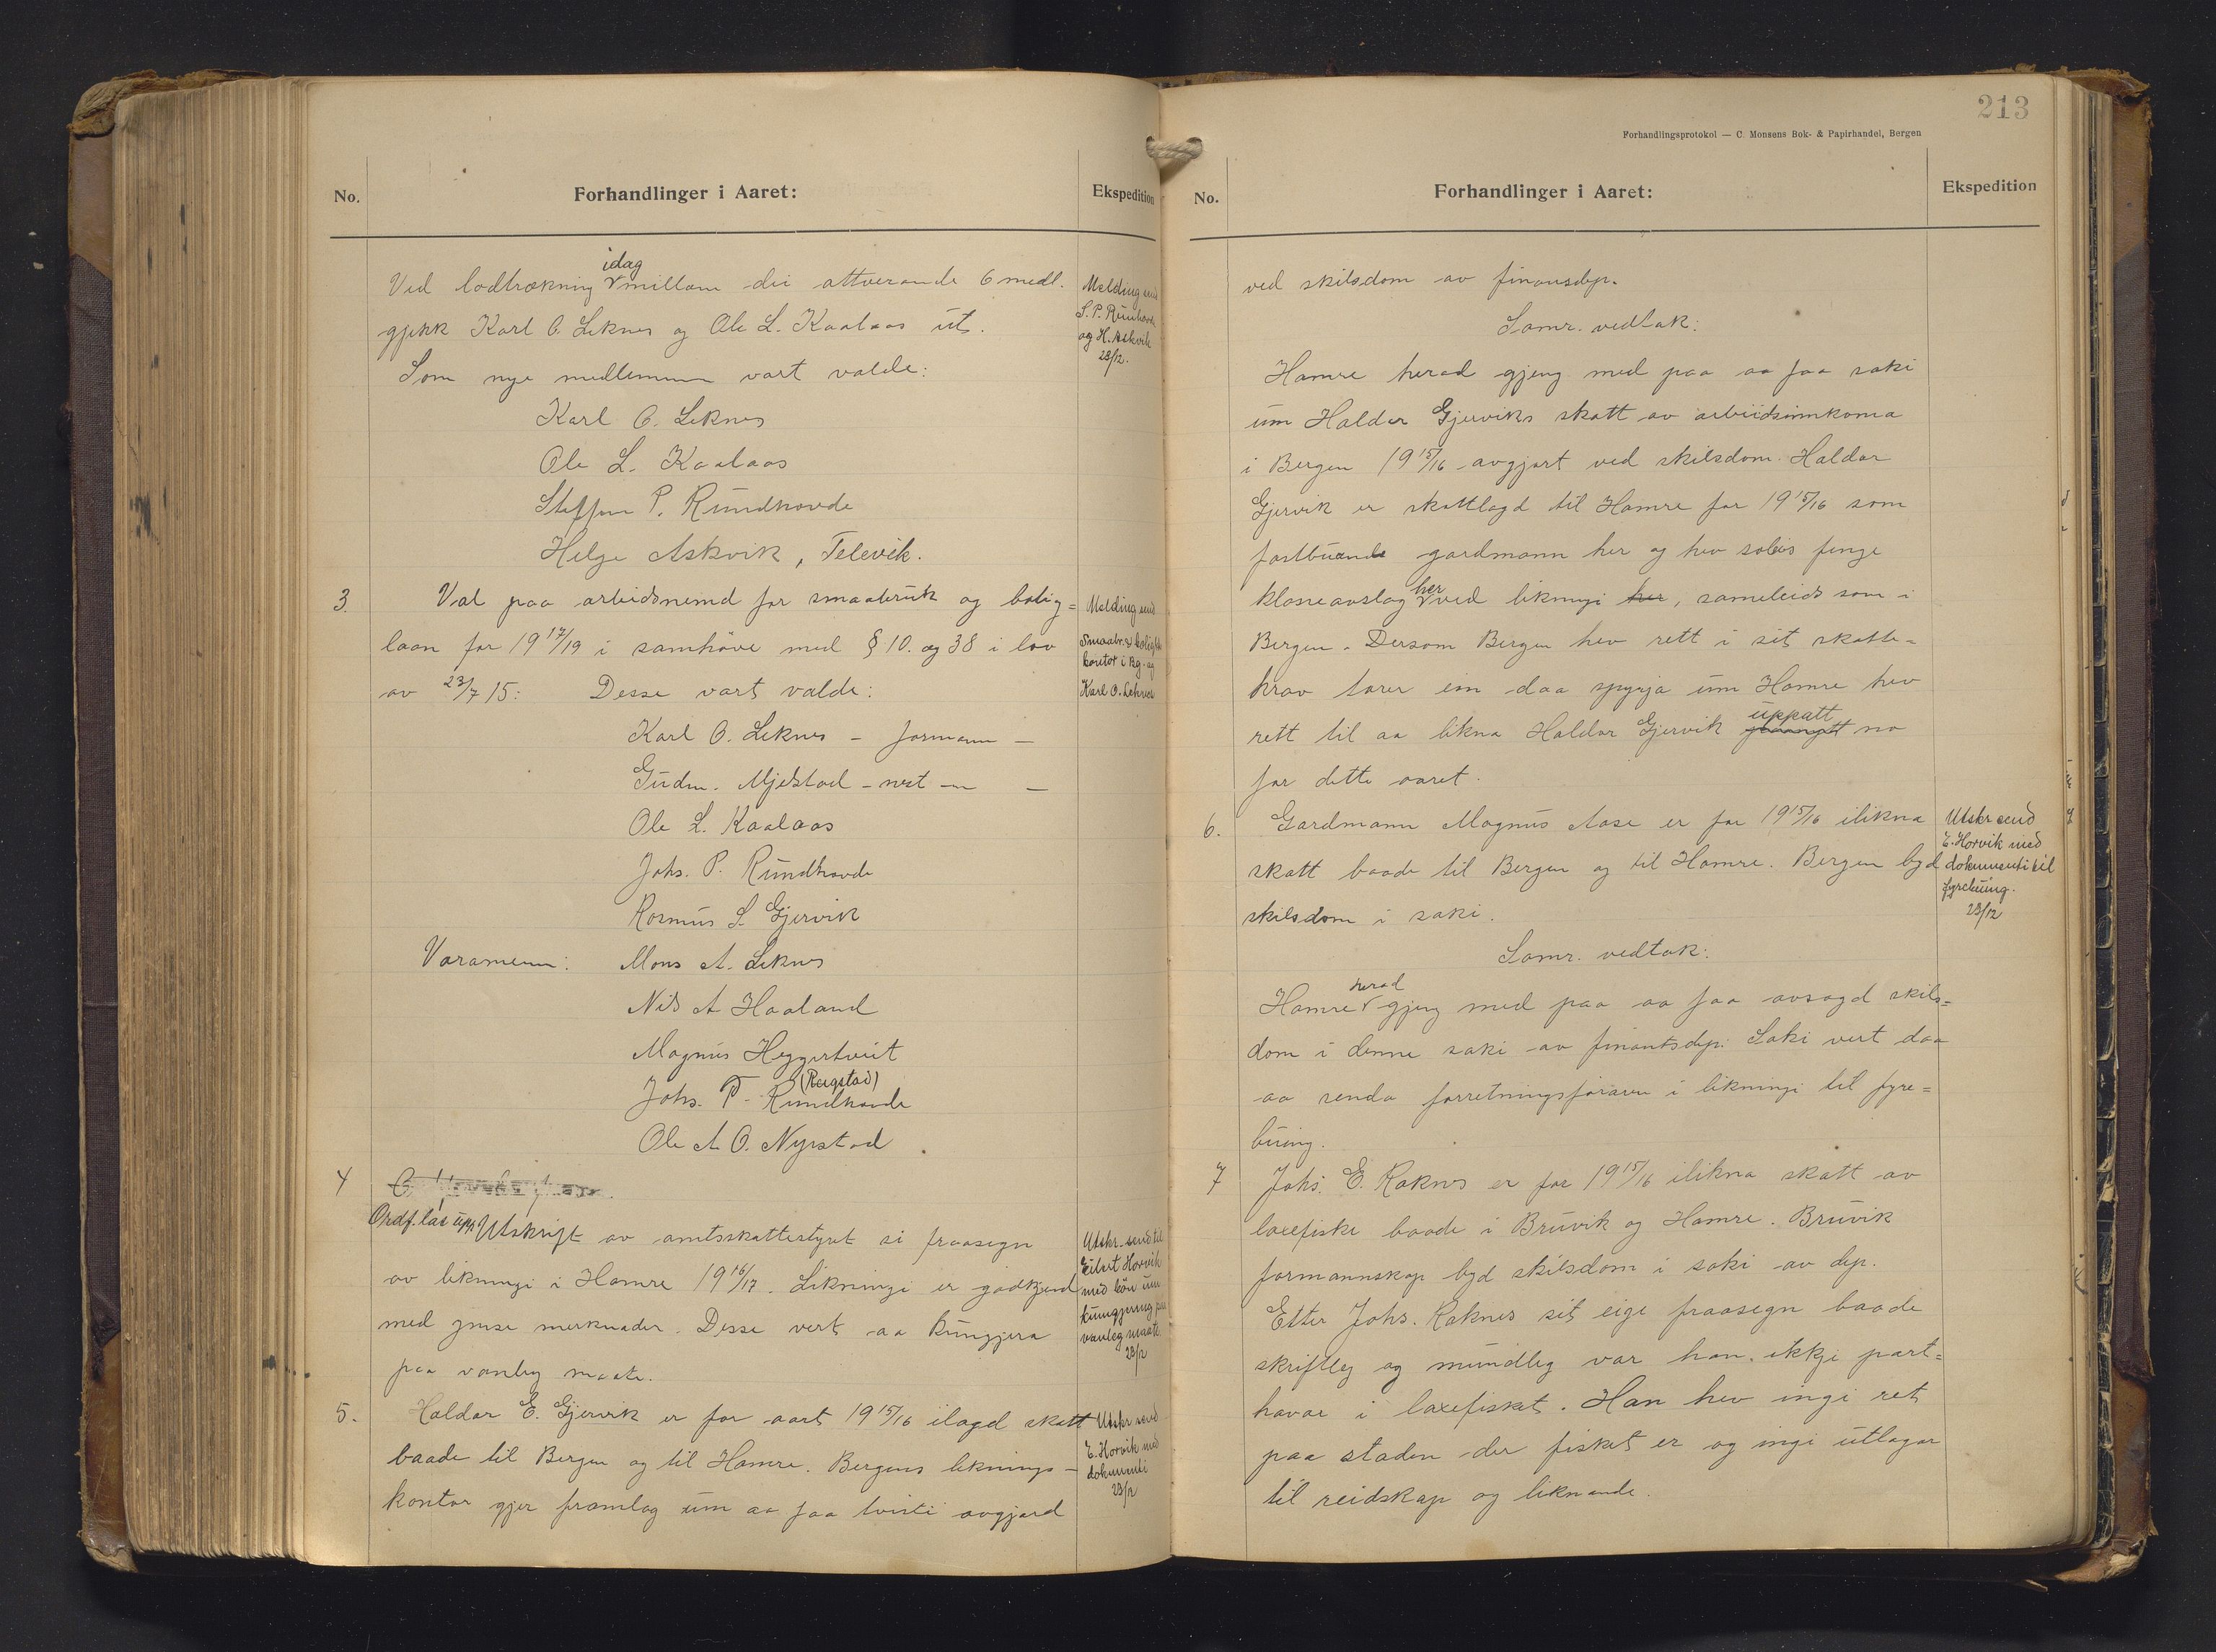 No.
Forhandlinger i Aaret:
Ekspedition
Ved lodtrækning idag millom dei attverande 6 medl.
gjekk Karl O. Leknes og Ole L. Kaalaas ut.
Som nye medlemmer vart valde:
Karl O. Leknes
Ole L. Kaalaas
Steffen P. Rundhovde
Helge Askvik, Televik.
Melding send
S. P. Rundhovde
og H. Askvik
23/12.
3. Val paa arbeidsnemd for smaabruk og bolig=
laan for 1917/19 i samhøve med § 10. og 38 i lov
av 23/7 15: Desse vart valde:
Karl O. Leknes – formann –
Gudm. Mjelstad – nest – " –
Ole L. Kaalaas
Johs. P. Rundhovde
Rasmus S. Gjervik
Varamenn: Mons A. Leknes
Nils A Haaland
Magnus Heggertveit
(Reigstad)
Johs. P. Rundhovde
Ole A O. Nyrstad
Melding send
Smaabr. & bolig
kontor i Bg. og
Karl O. Leknes
4
Ordf. las upp Utskrift av amtsskattestyret si fraasegn
av likningi i Hamre 1916/17. Likningi er godkjend
med ymse merknader. Desse vert aa kungjera
paa vanleg maate.
Utskr. send til
Eilert Horvik
med bön um
kunngjering paa
vanleg maate.
23/12
5. Haldor E. Gjervik er for aaret 1915/16 ilagd skatt
baade til Bergen og til Hamre. Bergens liknings-
kontor gjer framlag um aa faa tvisti avgjord
Utskr send
E. Horvik med
dokumenti
23/12
213
Forhandlingsprotokol — C. Monsens Bok- & Papirhandel, Bergen
No.
Forhandlinger i Aaret:
Ekspedition
ved skilsdom av finansdep.
Samr. vedtak:
Hamre herad gjeng med paa aa faa saki
um Haldor Gjerviks skatt av arbeidsinnkoma
i Bergen 1915/16 avgjort ved skilsdom. Haldor
Gjervik er skattlagd til Hamre for 1915/16 som
fastbuende gardmann her og hev soleis fenge
klasseavslag her ved likningi her, sameleids som i
Bergen. Dersom Bergen hev rett i sit skatte=
krav torer ein daa spyrja um Hamre hev
rett til aa likna Haldor Gjervik uppatt no
for dette aaret.
6. Gardmann Magnus Aase er for 1915/16 ilikna
skatt baade til Bergen og til Hamre. Bergen byd
skilsdom i saki.
Utskr send
E. Horvik med
dokumenti til
fyrebuing.
23/12
Samr. vedtak:
Hamre herad gjeng med paa aa faa avsagd skils=
dom i denne saki av finantsdep. Saki vert daa
aa senda forretningsföraren i likningi til fyre=
buing.
7 Johs. E. Raknes er for 1915/16 ilikna skatt av
laxefiske baade i Bruvik og Hamre. Bruvik
formannskap byd skilsdom i saki av dep.
Etter Johs. Raknes sit eige fraasegn baade
skriftleg og mundleg var han ikkje part=
havar i laxefisket. Han hev ingi ret
paa staden der fisket er og ingi utlagor
til reidskap og liknande.